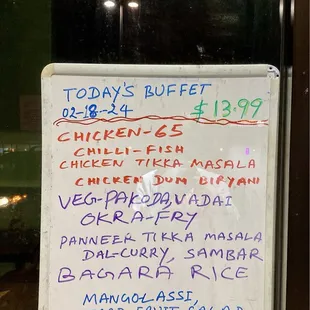 TODAY'S BUFFET
02-18-24 $13.99
CHICKEN-65
CHILLI-FISH
CHICKEN TIKKA MASALA
CHICKEN DUM BIRYANI
VEG-PAKODA,VADAI
OKRA-FRY
PANNEER TIKKA MASALA
DAL-CURRY, SAMBAR
BAGARA RICE
MANGOLASSI,
FRUIT SALAD